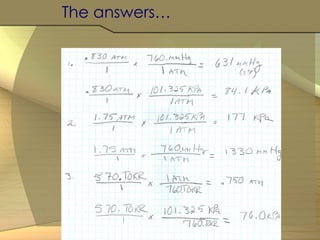 The answers…
1. .830 ATM / 1 × 760. mmHg / 1 ATM = 631 mmHg (3 SF)
.830 ATM / 1 × 101.325 KPa / 1 ATM = 84.1 KPa
2. 1.75 ATM / 1 × 101.325 KPa / 1 ATM = 177 KPa
1.75 ATM / 1 × 760 mmHg / 1 ATM = 1330 mm Hg
3. 570. TORR / 1 × 1 ATM / 760 TORR = .750 ATM
570. TORR / 1 × 101.325 KPa / 760 TORR = 76.0 KPa